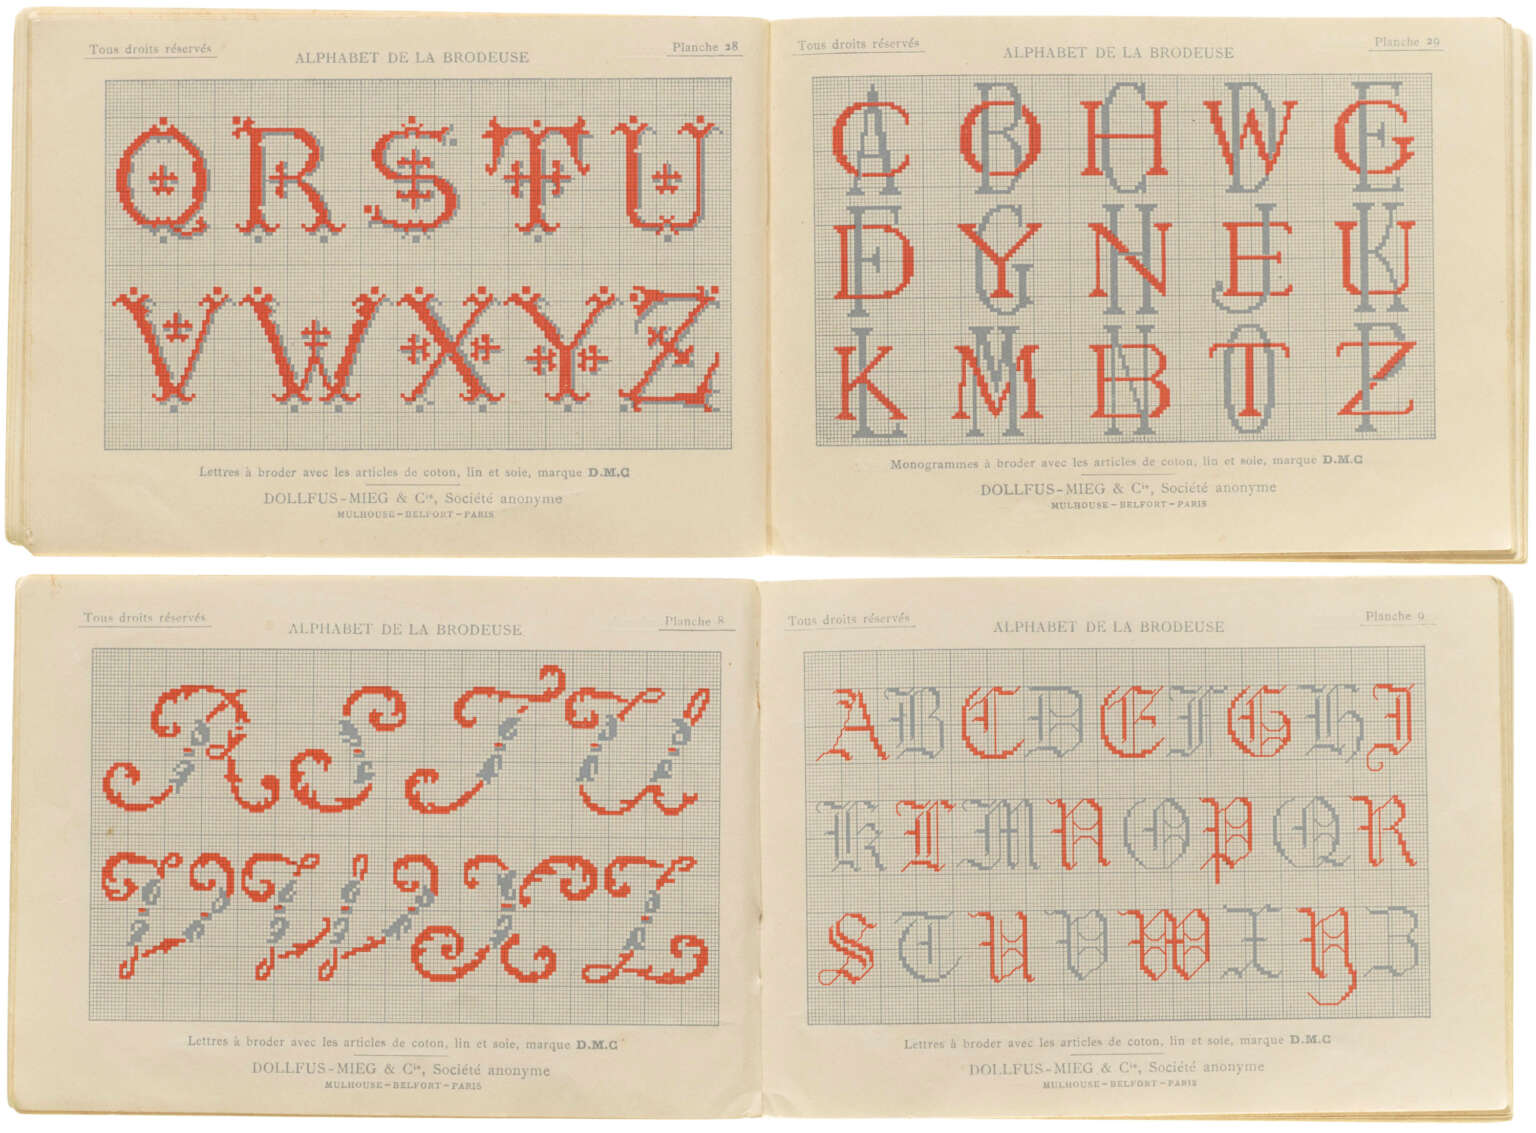 Tous droits réservés
ALPHABET DE LA BRODEUSE
Planche 28
Q R S T U
V W X Y Z
Lettres à broder avec les articles de coton, lin et soie, marque D.M.C
DOLLFUS-MIEG & Cie, Société anonyme
MULHOUSE-BELFORT-PARIS
Tous droits réservés
ALPHABET DE LA BRODEUSE
Planche 29
CA OB HC WD GE
DF YG NH EJ UK
KL MM BN TO ZP
Monogrammes à broder avec les articles de coton, lin et soie, marque D.M.C
DOLLFUS-MIEG & Cie, Société anonyme
MULHOUSE-BELFORT-PARIS
Tous droits réservés
ALPHABET DE LA BRODEUSE
Planche 8
R S T U
V W X Z
Lettres à broder avec les articles de coton, lin et soie, marque D.M.C
DOLLFUS-MIEG & Cie, Société anonyme
MULHOUSE-BELFORT-PARIS
Tous droits réservés
ALPHABET DE LA BRODEUSE
Planche 9
A B C D E F G H I
K L M N O P Q R
S T U V W X Y Z
Lettres à broder avec les articles de coton, lin et soie, marque D.M.C
DOLLFUS-MIEG & Cie, Société anonyme
MULHOUSE-BELFORT-PARIS